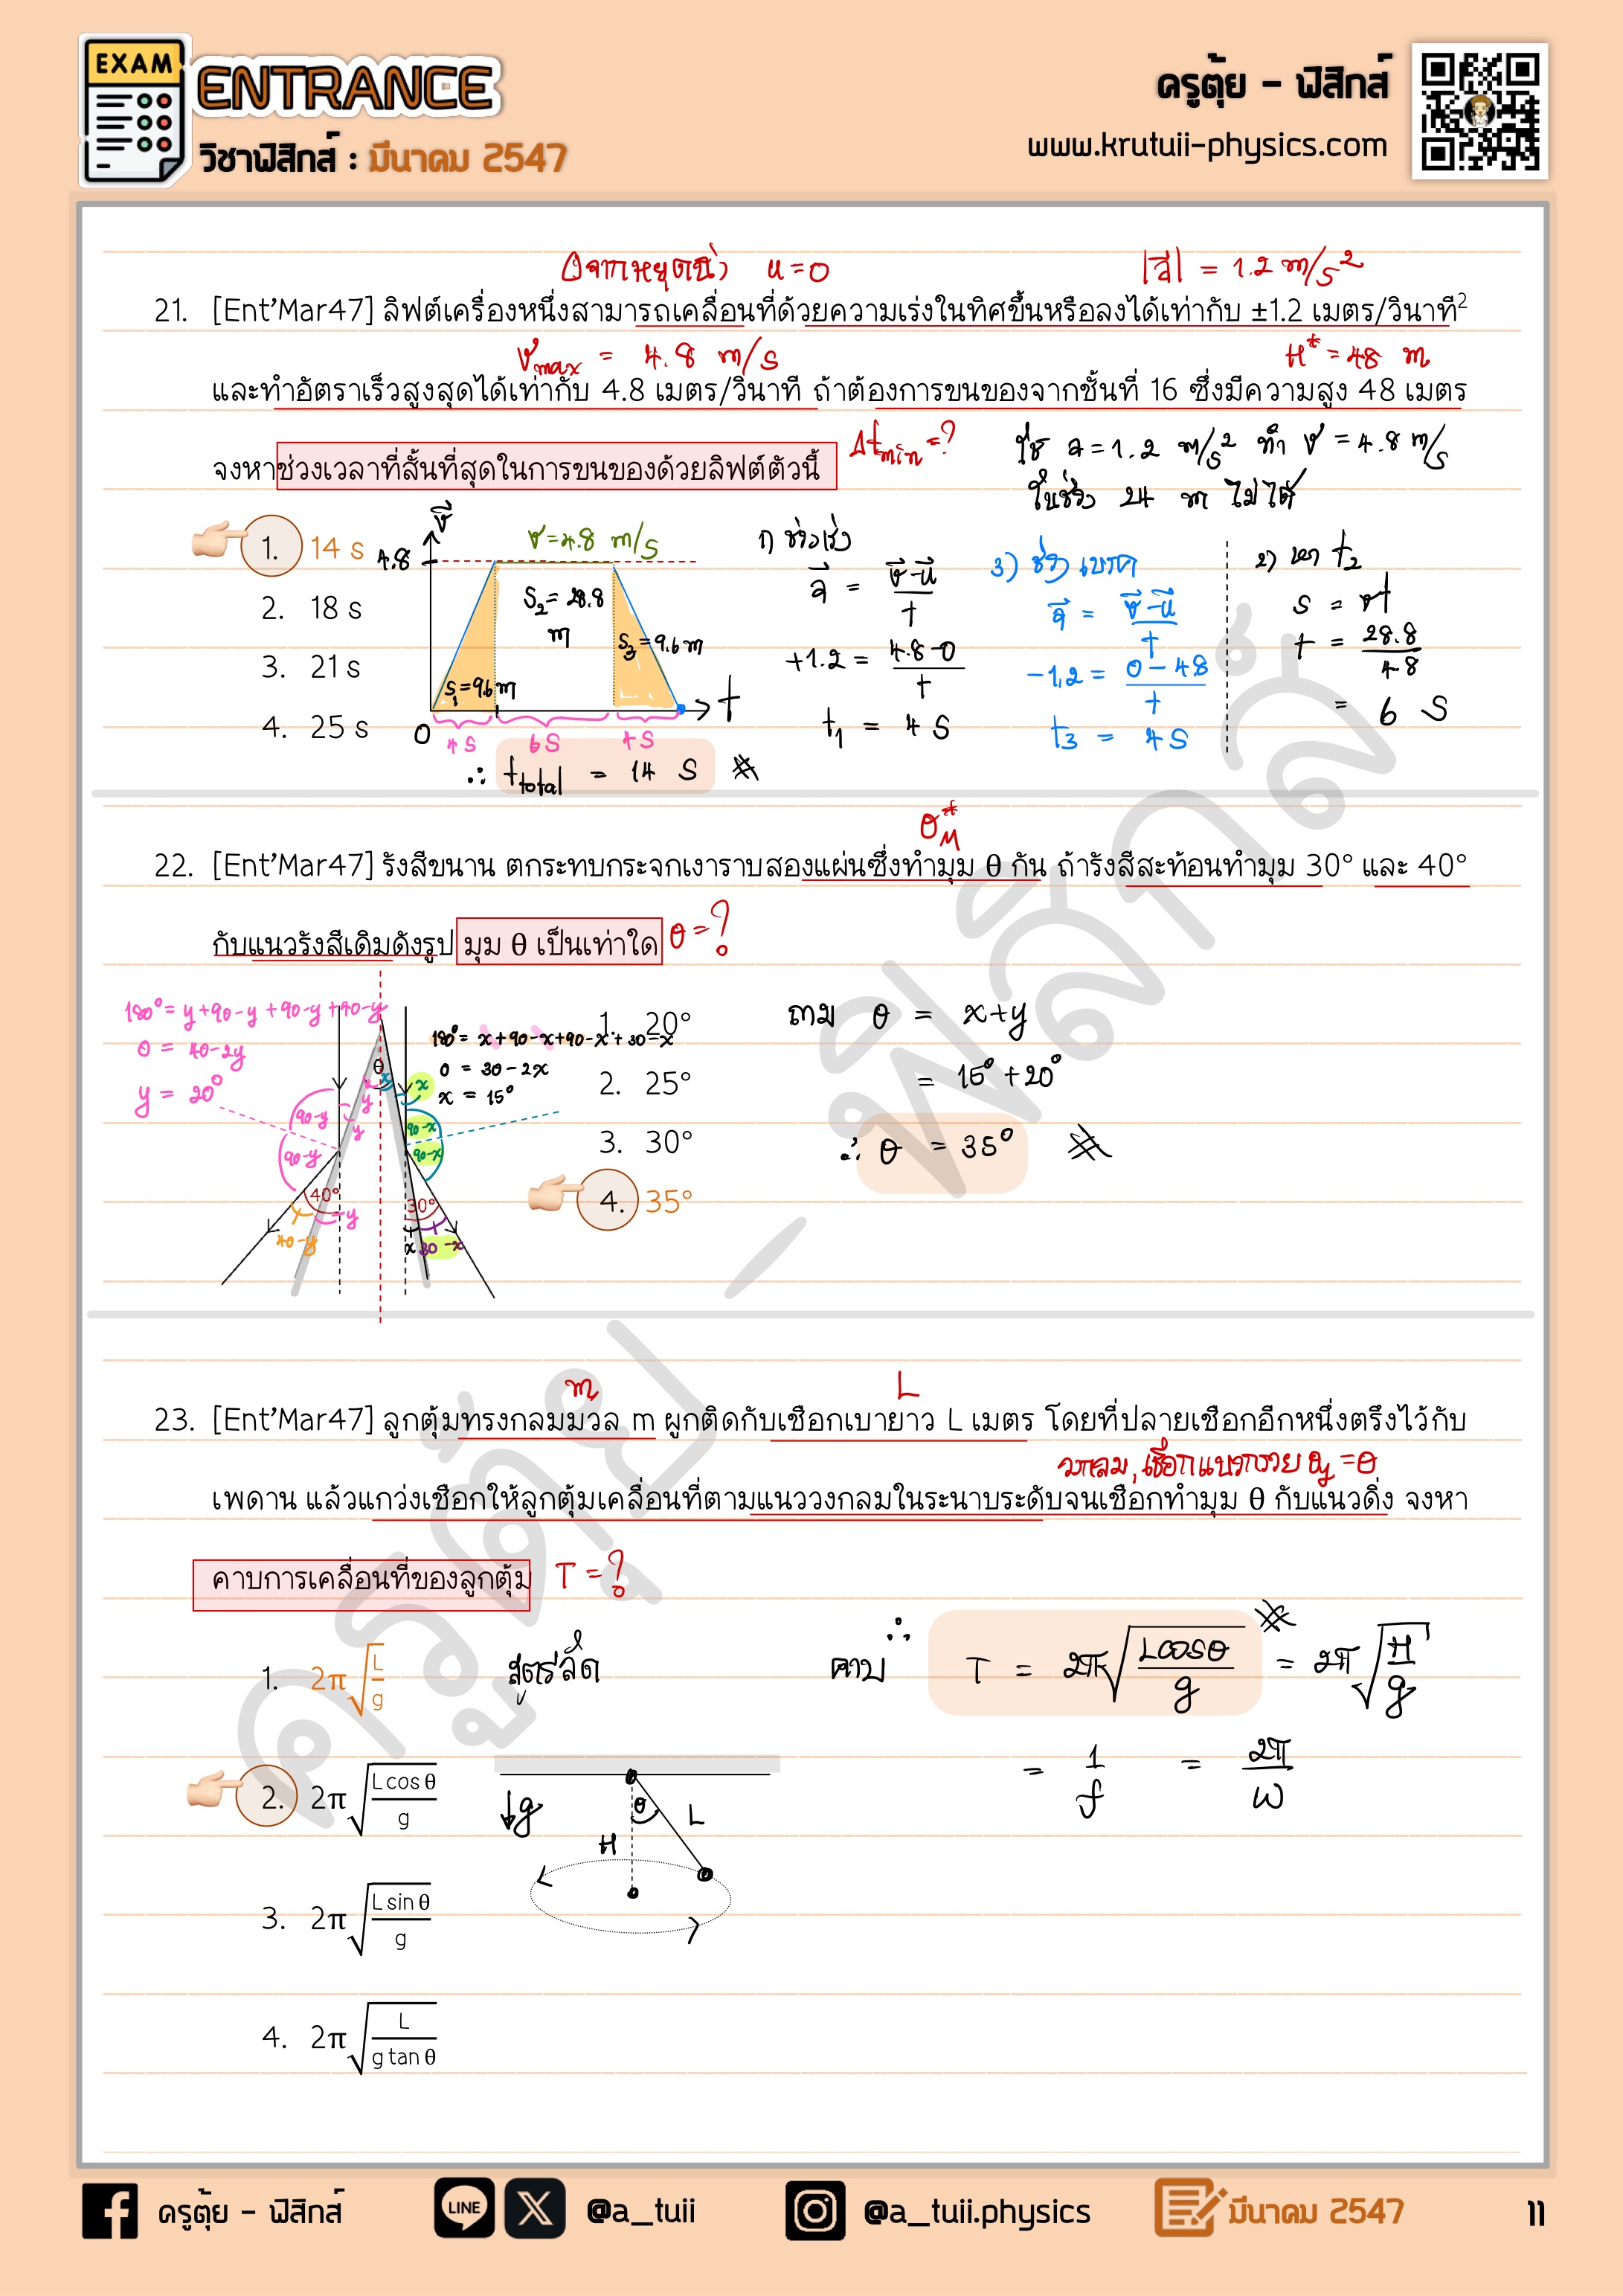 EXAM
ENTRANCE
วิชาฟิสิกส์ : มีนาคม 2547
ครูตุ้ย - ฟิสิกส์
www.krutuii-physics.com
u = 0
|a⃗| = 1.2 m/s²
21. [Ent'Mar47] ลิฟต์เครื่องหนึ่งสามารถเคลื่อนที่ด้วยความเร่งในทิศขึ้นหรือลงได้เท่ากับ ±1.2 เมตร/วินาที²
v max = 4.8 m/s
H* = 48 m
และทำอัตราเร็วสูงสุดได้เท่ากับ 4.8 เมตร/วินาที ถ้าต้องการขนของจากชั้นที่ 16 ซึ่งมีความสูง 48 เมตร
จงหาช่วงเวลาที่สั้นที่สุดในการขนของด้วยลิฟต์ตัวนี้
Δt min = ?
ใช้ a = 1.2 m/s² ทำ v = 4.8 m/s
ในช่วง 24 m ไม่ได้
1. 14 s
2. 18 s
3. 21 s
4. 25 s
v⃗
4.8
v = 4.8 m/s
S₁ = 9.6 m
S₂ = 28.8 m
S₃ = 9.6 m
0
t
4 s
6 s
4 s
∴ t total = 14 s #
1) ช่วงเร่ง
a⃗ = (v⃗ - u⃗)/t
+1.2 = (4.8 - 0)/t
t₁ = 4 s
3) ช่วงเบรค
a⃗ = (v⃗ - u⃗)/t
-1.2 = (0 - 4.8)/t
t₃ = 4 s
2) หา t₂
s = vt
t = 28.8/4.8
= 6 s
θ*M
22. [Ent'Mar47] รังสีขนาน ตกระทบกระจกเงาราบสองแผ่นซึ่งทำมุม θ กัน ถ้ารังสีสะท้อนทำมุม 30° และ 40°
กับแนวรังสีเดิมดังรูป มุม θ เป็นเท่าใด
θ = ?
180° = y + 90-y + 90-y + 40-y
0 = 40 - 2y
y = 20°
180° = x + 90-x + 90-x + 30-x
0 = 30 - 2x
x = 15°
θ
y
x
x
y
y
90-y
90-y
90-x
90-x
40°
y
40-y
30°
x
30-x
1. 20°
2. 25°
3. 30°
4. 35°
ถาม θ = x + y
= 15° + 20°
∴ θ = 35° #
m
L
23. [Ent'Mar47] ลูกตุ้มทรงกลมมวล m ผูกติดกับเชือกเบายาว L เมตร โดยที่ปลายเชือกอีกหนึ่งตรึงไว้กับ
วงกลม, เชือกแบบกรวย θy = θ
เพดาน แล้วแกว่งเชือกให้ลูกตุ้มเคลื่อนที่ตามแนววงกลมในระนาบระดับจนเชือกทำมุม θ กับแนวดิ่ง จงหา
คาบการเคลื่อนที่ของลูกตุ้ม
T = ?
1. 2π√(L/g)
2. 2π√(L cos θ/g)
3. 2π√(L sin θ/g)
4. 2π√(L/g tan θ)
สูตรลัด
g
θ
L
H
∴ คาบ T = 2π√(L cosθ/g) # = 2π√(H/g)
= 1/f = 2π/ω
ครูตุ้ย - ฟิสิกส์
ครูตุ้ย - ฟิสิกส์
LINE
@a_tuii
@a_tuii.physics
มีนาคม 2547
11